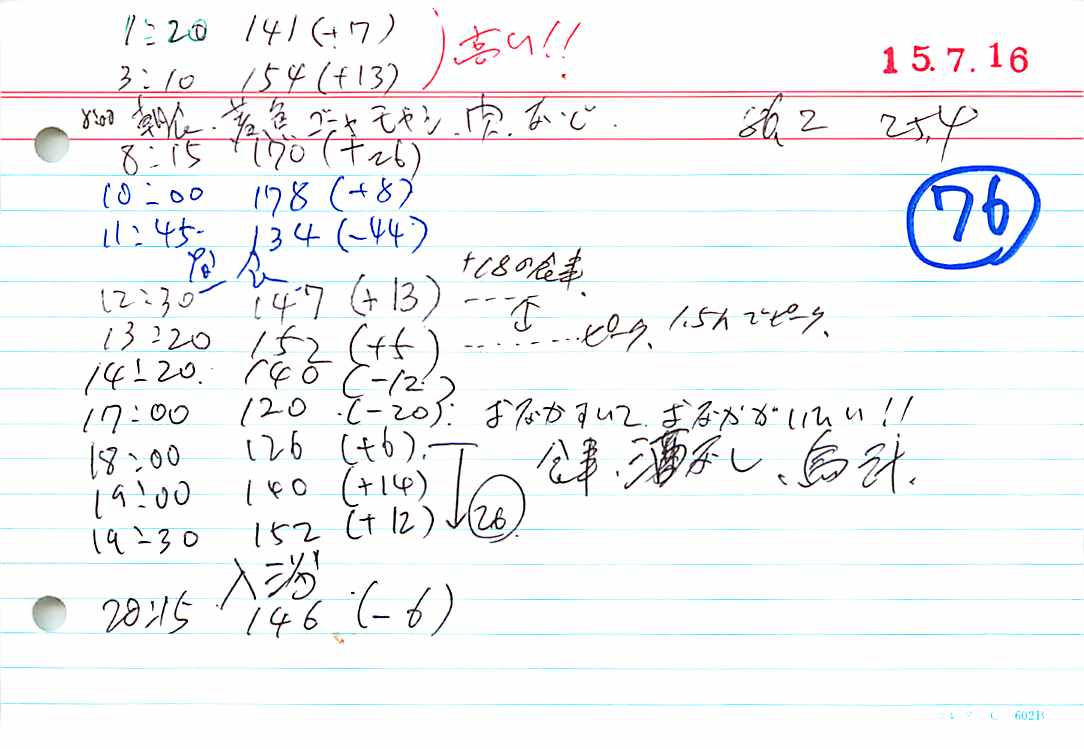 1:20 141 (+7)
高い!!
15.7.16
3:10 154 (+13)
朝食、 ゴーヤ モヤシ、肉、など.
2 25.4
8:15 170 (+26)
10:00 178 (+8)
76
11:45 134 (-44)
昼食
+18の食事.
12:30 147 (+13)
13:20 152 (+5) ピーク、1.5hでピーク、
14:20. 140 (-12)
17:00 120 (-20). おなかすいて、おなかがいたい!!
18:00 126 (+6). 食事、酒なし、
19:00 140 (+14)
26
19:30 152 (+12)
入浴
20:15 146 (-6)
602B